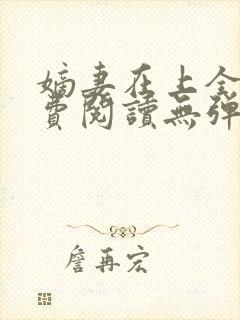 嫡妻在上全
費閱讀無彈
詹再宏